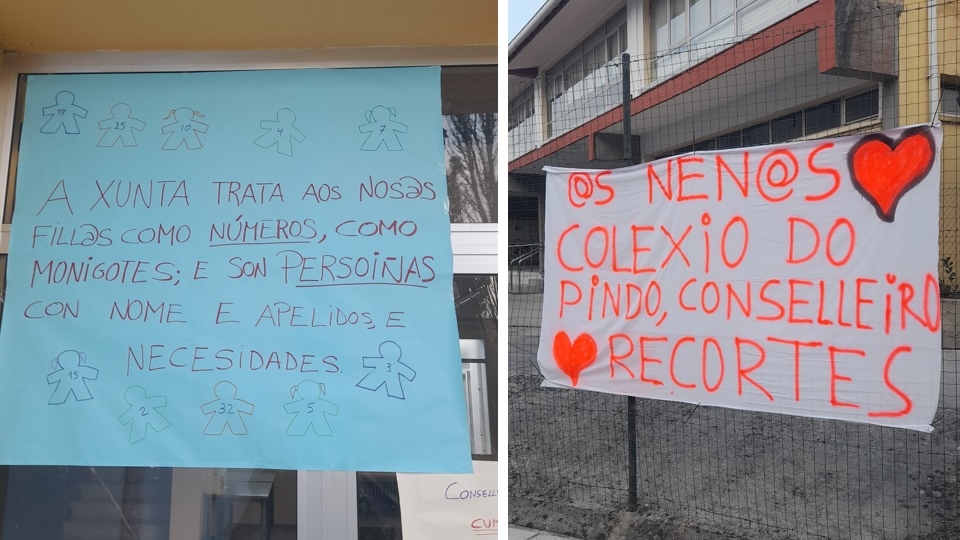 18
25
10
4
7
A XUNTA TRATA AOS NOS@S
FILL@S COMO NÚMEROS, COMO
MONIGOTES; E SON PERSOIÑAS
CON NOME E APELIDOS, E
NECESIDADES.
15
3
2
32
5
CUM
@S NEN@S
COLEXiO DO
PiNDO, CONSELLEiRO
RECORTES